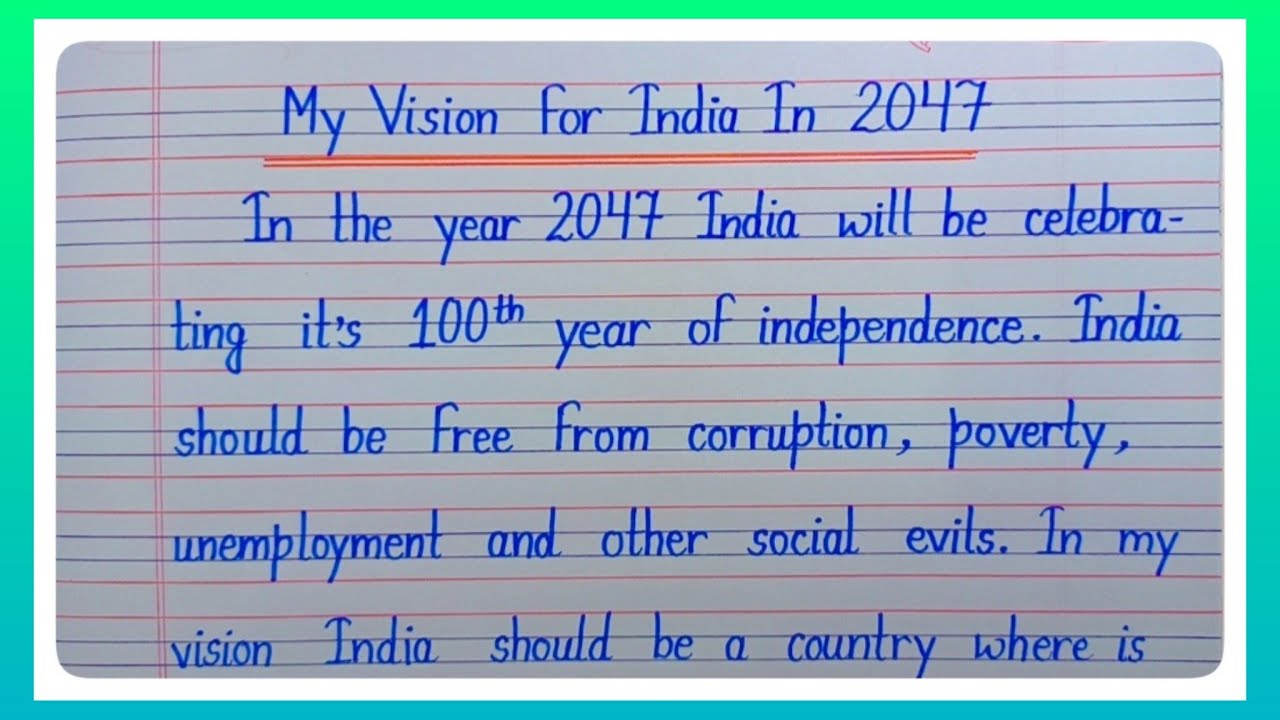 My Vision For India In 2047
In the year 2047 India will be celebra-
ting it's 100th year of independence. India
should be free from corruption, poverty,
unemployment and other social evils. In my
vision India should be a country where is